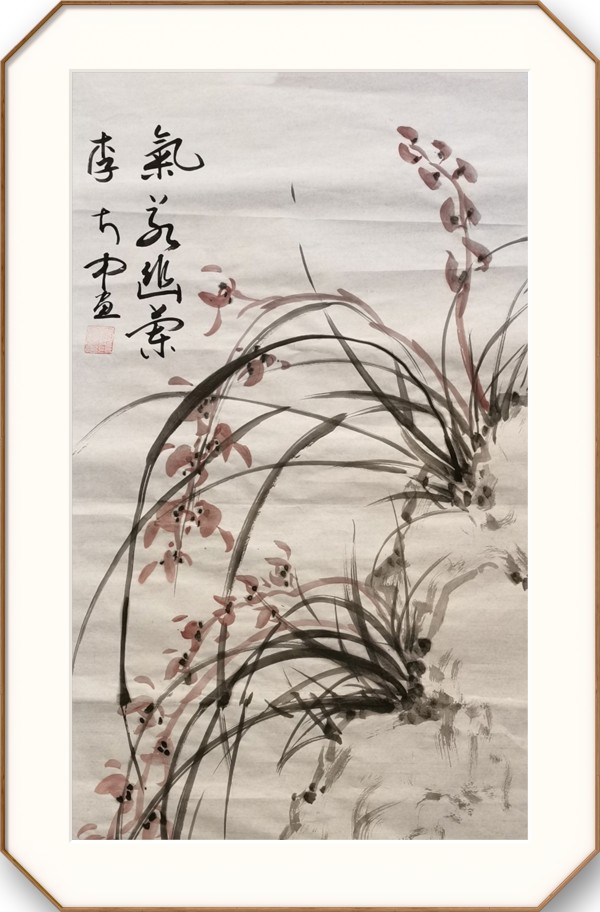 氣若幽蘭
李中畫